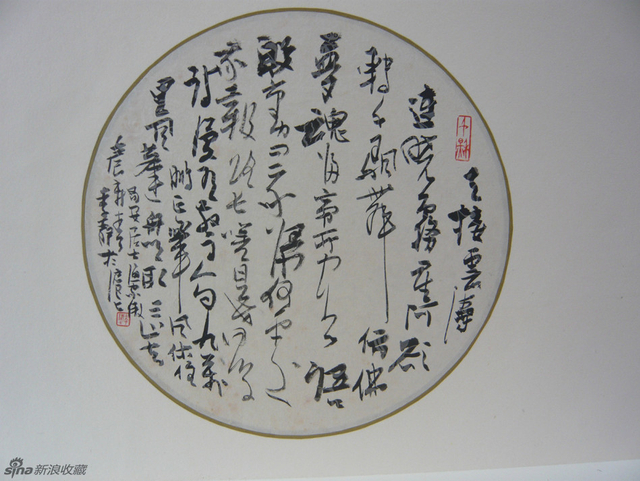 天接雲濤
連曉霧星河欲
轉千帆舞彷彿
夢魂歸帝所聞天語
殷勤問我歸何處
我報路長嗟日暮學
詩謾有驚人句九萬
里風鵬正舉風休住
蓬舟吹取三山去
易安居士漁家傲
壬辰新春
sina新浪收藏